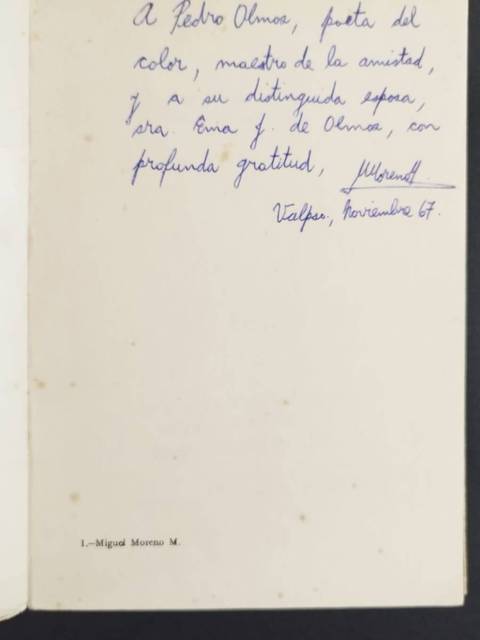 A Pedro Olmos, poeta del
color, maestro de la amistad,
y a su distinguida esposa,
sra. Ema J. de Olmos, con
profunda gratitud, MMorenoM.
Valpso., Noviembre 67.
1.—Miguel Moreno M.